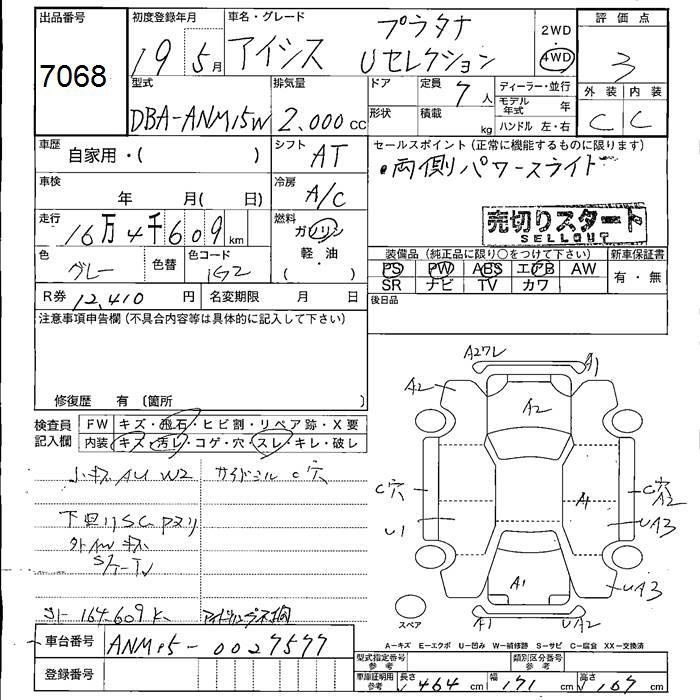 出品番号
7068
初度登録年月
19 5月
車名・グレード
プラタナ
アイシス Uセレクション
2WD
4WD
評価点
3
外装 内装
C C
型式
DBA-ANM15W
排気量
2.000cc
ドア
形状
定員 7人
積載 kg
ディーラー・並行
モデル年式 年
ハンドル 左・右
車歴
自家用・( )
シフト
AT
セールスポイント(正常に機能するものに限ります)
・両側パワースライド
車検
年 月( 日)
冷房
A/C
走行
16万4千609km
燃料
ガソリン
軽・油
( )
売切りスタート
SELLOUT
色
グレー
色替
色コード
1G2
装備品(純正品に限り○をつけて下さい)
PS PW ABS エアB AW
SR ナビ TV カワ
新車保証書
有・無
R券 12,410円
名変期限 月 日
後日品
注意事項申告欄(不具合内容等は具体的に記入して下さい)
修復歴 有(箇所 )
検査員記入欄
FW キズ・飛石・ヒビ割・リペア跡・X要
内装 キズ・汚レ・コゲ・穴・スレ・キレ・破レ
小キズAU W2
サイドシル C穴
下回りSC
164.609K
A2ワレ
A1
A2
A2
C穴
U1
A1
C穴
A2
UA3
UA3
A1
スペア
A1
UA2
A-キズ E-エクボ U-凹み W-補修跡 S-サビ C-腐食 XX-交換済
車台番号
ANM15-0027577
登録番号
型式指定番号 参考
類別区分番号 参考
車庫証明用 参考
長さ 464cm
幅 171cm
高さ 167cm